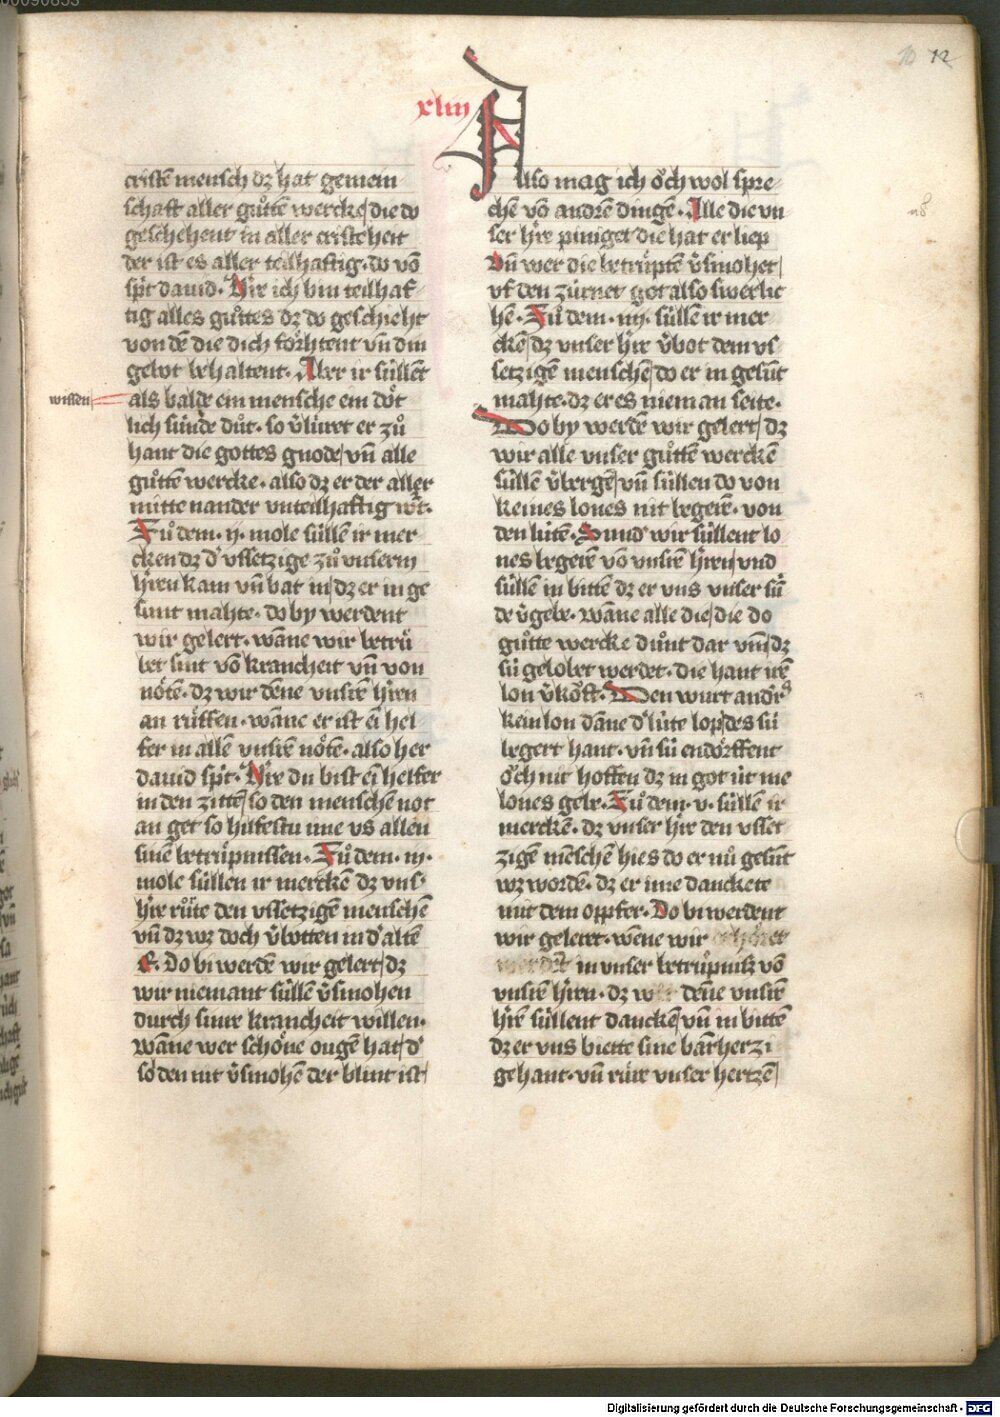 xliij
10 12
cristē mensch dz hat gemein
schaft aller gůttē wercke die do
geschehent in aller cristēheit
der ist es aller teilhaftig · do vō
sp̄t dauid · Hr̄e ich bin teilhaf
tig alles gůttes dz do geschicht
von dē die dich förhtent vn̄ din
gebot behaltent · Aber ir süllēt
wissen
als balde ein mensche ein döt
lich sünde důt · so v̄lüret er zů
hant die gottes gnode vn̄ alle
gůttē wercke · also dz er der aller
mittenander vnteilhaftig wt̄ ·
Zů dem · ij · mole süllē ir mer
cken dz d' vssetzige zů vnserm
hr̄en kam vn̄ bat in dz er in ge
sunt mahte · do by werdent
wir gelert · wāne wir betrü
bet sint vō kranckeit vn̄ von
nötē · dz wir dēne vnsrē hr̄en
an rüffen · wāne er ist ei helf
fer in allē vnsrē nötē · also her
dauid sp̄t · Hr̄e du bist ei helfer
in den zittē so den menschē not
an get so hilfestu ime vs allen
sinē betrüpnissen · Zů dem · iij ·
mole süllen ir merckē dz vns'
hr̄e růrte den vssetzigē menschē
vn̄ dz wz doch v̄botten in d' altē
E · Do bi werdē wir gelert dz
wir niemant süllē v̄smohen
durch sinre kranckeit willen ·
wāne wer schöne ougē hat d'
so den nit v̄smohē der blint ist
Also mag ich öch wol spre
chē vō andrē dingē · Alle die vn
ser hr̄e piniget die hat er liep
Vn̄ wer die betrüptē v̄smohet
vf den zürnet got also swerlic
hē · Zů dem · iiij · süllē ir mer
ckē dz vnser hr̄e v̄bot dem vs
setzigē menschē do er in gesūt
mahte · dz er es nieman seite ·
Do by werdē wir gelert dz
wir alle vnser gůttē werckē
süllē v̄bergē vn̄ süllen do von
keines lones nit begerē · von
den lütē · Sund' wir süllent lo
nes begerē vō vnsrē hr̄en vnd
süllē in bittē dz er vns vnser sǖ
de v̄gebe · wāne alle die die do
gůtte wercke důnt dar vm̄ dz
sü gelobet werdēt · die hant irē
lon v̄kōft · Den wurt andrs
kein lon dāne d' lüte lop des sü
begert hant · vn̄ sü endörffent
öch nit hoffen dz in got üt me
lones gebe · Zů dem · v · süllē ir
merckē · dz vnser hr̄e den vsset
zigē mēschē hies do er nů gesūt
wz wordē · dz er ime danckete
mit dem oppfer · Do bi werdent
wir gelert · wēne wir
in vnser betrüpnisz vō
vnsrē hr̄en · dz wir dēne vnsrē
hr̄ē süllent danckē vn̄ in bittē
dz er vns biette sine barmherzi
gehant · vn̄ rüre vnser hertzē
Digitalisierung gefördert durch die Deutsche Forschungsgemeinschaft - DFG